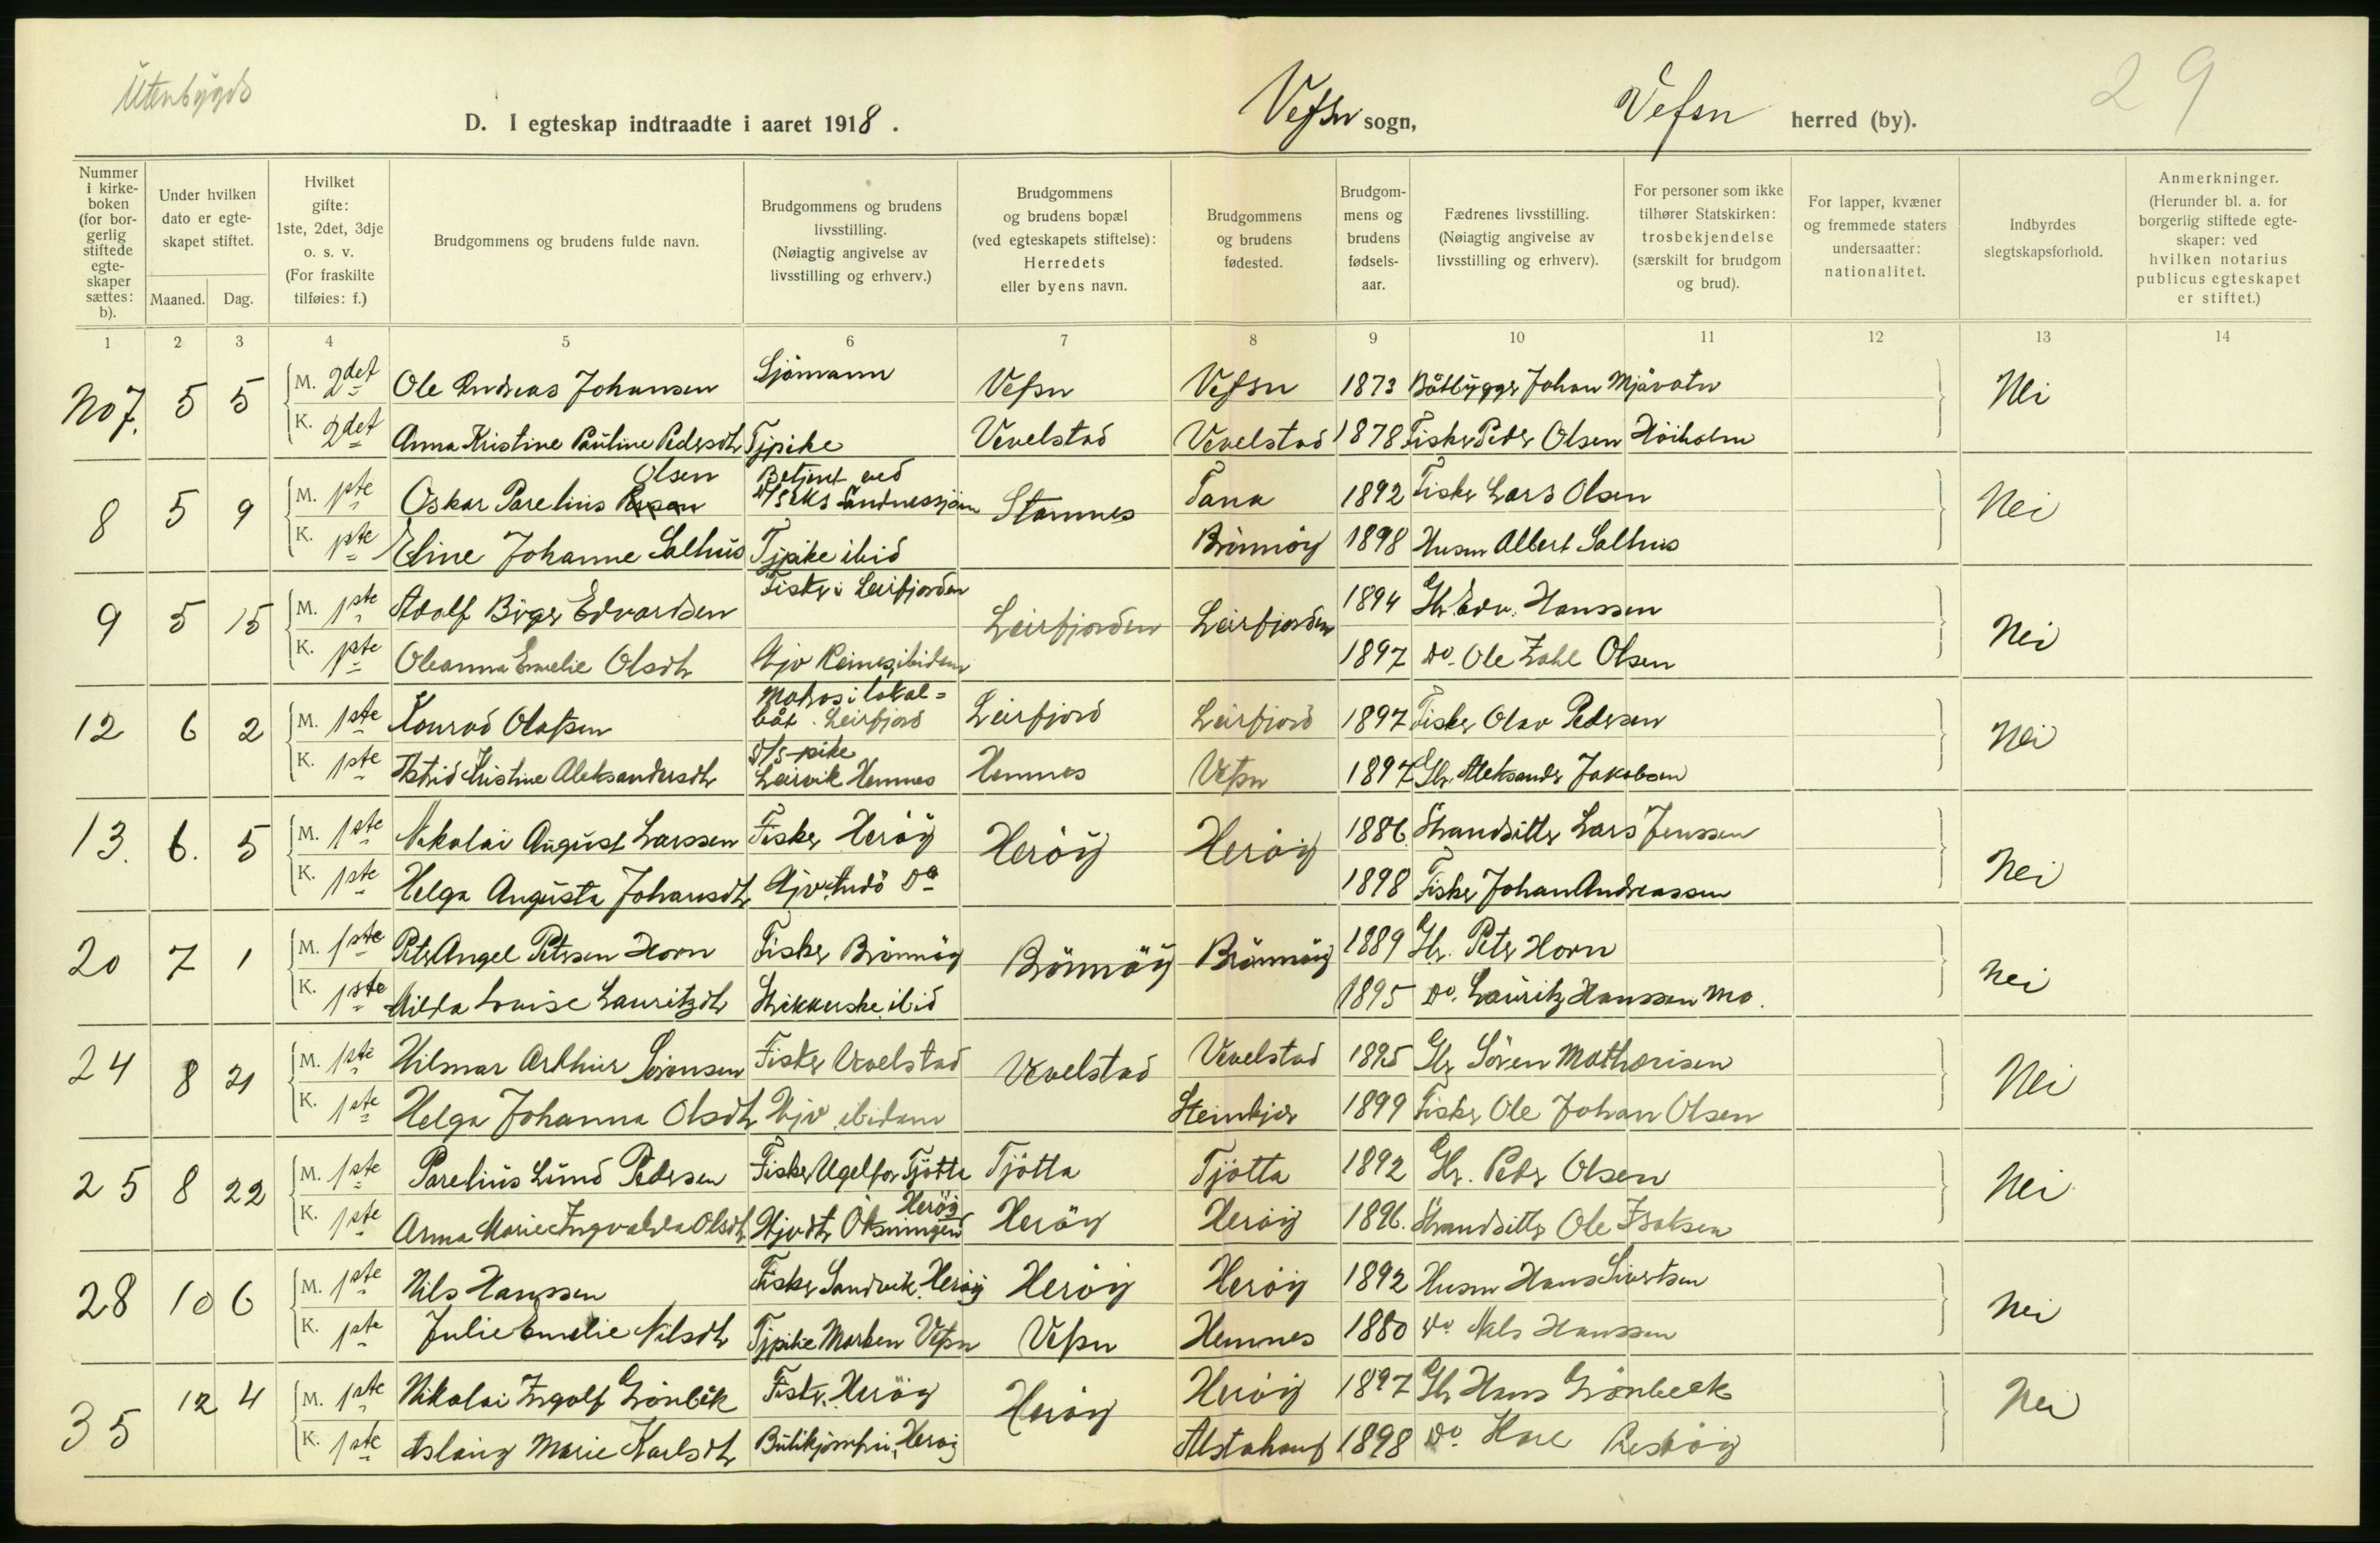 Utenbygds
29
D. I egteskap indtraadte i aaret 1918. Vefsn sogn, Vefsn herred (by).
Nummer i kirke-boken (for bor-gerlig stiftede egte-skaper sættes: b).
Under hvilken dato er egte-skapet stiftet.
Maaned. Dag.
Hvilket gifte: 1ste, 2det, 3dje o. s. v. (For fraskilte tilføies: f.)
Brudgommens og brudens fulde navn.
Brudgommens og brudens livsstilling. (Nøiagtig angivelse av livsstilling og erhverv.)
Brudgommens og brudens bopæl (ved egteskapets stiftelse): Herredets eller byens navn.
Brudgommens og brudens fødested.
Brudgom-mens og brudens fødsels-aar.
Fædrenes livsstilling. (Nøiagtig angivelse av livsstilling og erhverv).
For personer som ikke tilhører Statskirken: trosbekjendelse (særskilt for brudgom og brud).
For lapper, kvæner og fremmede staters undersaatter: nationalitet.
Indbyrdes slegtskapsforhold.
Anmerkninger. (Herunder bl. a. for borgerlig stiftede egte-skaper: ved hvilken notarius publicus egteskapet er stiftet.)
1 2 3 4 5 6 7 8 9 10 11 12 13 14
No 7. 5 5 M. 2det Ole Andreas Johansen Sjömann Vefsn Vefsn 1873 Båtbygger Johan Mjåvatn Nei
K. 2det Anna Kristine Pauline Pedersdtr Tjpike Vevelstad Vevelstad 1878 Fisker Peder Olsen Höiholm
8 5 9 M. 1ste Oskar Parelius Olsen Betjent ved Sandnessjöen Stamnes Tana 1892 Fisker Lars Olsen Nei
K. 1ste Eline Johanne Salhus Tjpike ibid Brönnöy 1898 Husm Albert Salhus
9 5 15 M. 1ste Adolf Birger Edvardsen Fisker i Leirfjorden Leirfjorden Leirfjorden 1894 Gbr. Edv. Hanssen Nei
K. 1ste Oleanna Emelie Olsdtr Hjv Reines ibidem 1897 Do. Ole Zahl Olsen
12 6 2 M. 1ste Konrad Olafsen Matros i lokal=båt. Leirfjord Leirfjord Leirfjord 1897 Fisker Olav Pedersen Nei
K. 1ste Astrid Kristine Aleksandersdtr pike Leirvik Hemnes Hemnes Vefsn 1897 Gbr. Aleksander Jakobsen
13. 6. 5 M. 1ste Nikolai August Larssen Fisker Heröy Heröy Heröy 1886. Strandsitter Lars Jenssen Nei
K. 1ste Helga Augusta Johansdtr Hjv. Do 1898 Fisker Johan Andreassen
20 7 1 M. 1ste Peter Angel Petersen Horn Fisker Brönnöy Brönnöy Brönnöy 1889 Gbr. Peter Horn Nei
K. 1ste Milda Louise Lauritzdtr Strikkerske ibid 1895 Do. Lauritz Hanssen Mo.
24 8 21 M. 1ste Hilmar Arthur Sörensen Fisker Vevelstad Vevelstad Vevelstad 1895 Gbr Sören Mathæisen Nei
K. 1ste Helga Johanna Olsdtr Hjv. ibidem Steinkjer 1899 Fisker Ole Johan Olsen
25 8 22 M. 1ste Parelius Lund Pedersen Fisker Tjötta Tjötta Tjötta 1892 Gbr. Peder Olsen Nei
K. 1ste Anna Marie Ingvalda Olsdtr Hjvdtr Öksningen Heröy Heröy Heröy 1896. Strandsitter Ole Isaksen
28 10 6 M. 1ste Nils Hanssen Fisker Sandvik. Heröy Heröy Heröy 1892 Husm Hans Sivertsen Nei
K. 1ste Julie Emelie Nilsdtr Tjpike Marken Vefsn Vefsn Hemnes 1880 Do Nils Hanssen
35 12 4 M. 1ste Nikolai Ingolf Grönbek Fisker. Heröy Heröy Heröy 1897 Gbr Hans Grönbeck Nei
K. 1ste Aslaug Marie Karlsdtr Butikjomfru, Heröy Alstahaug 1898 Do.